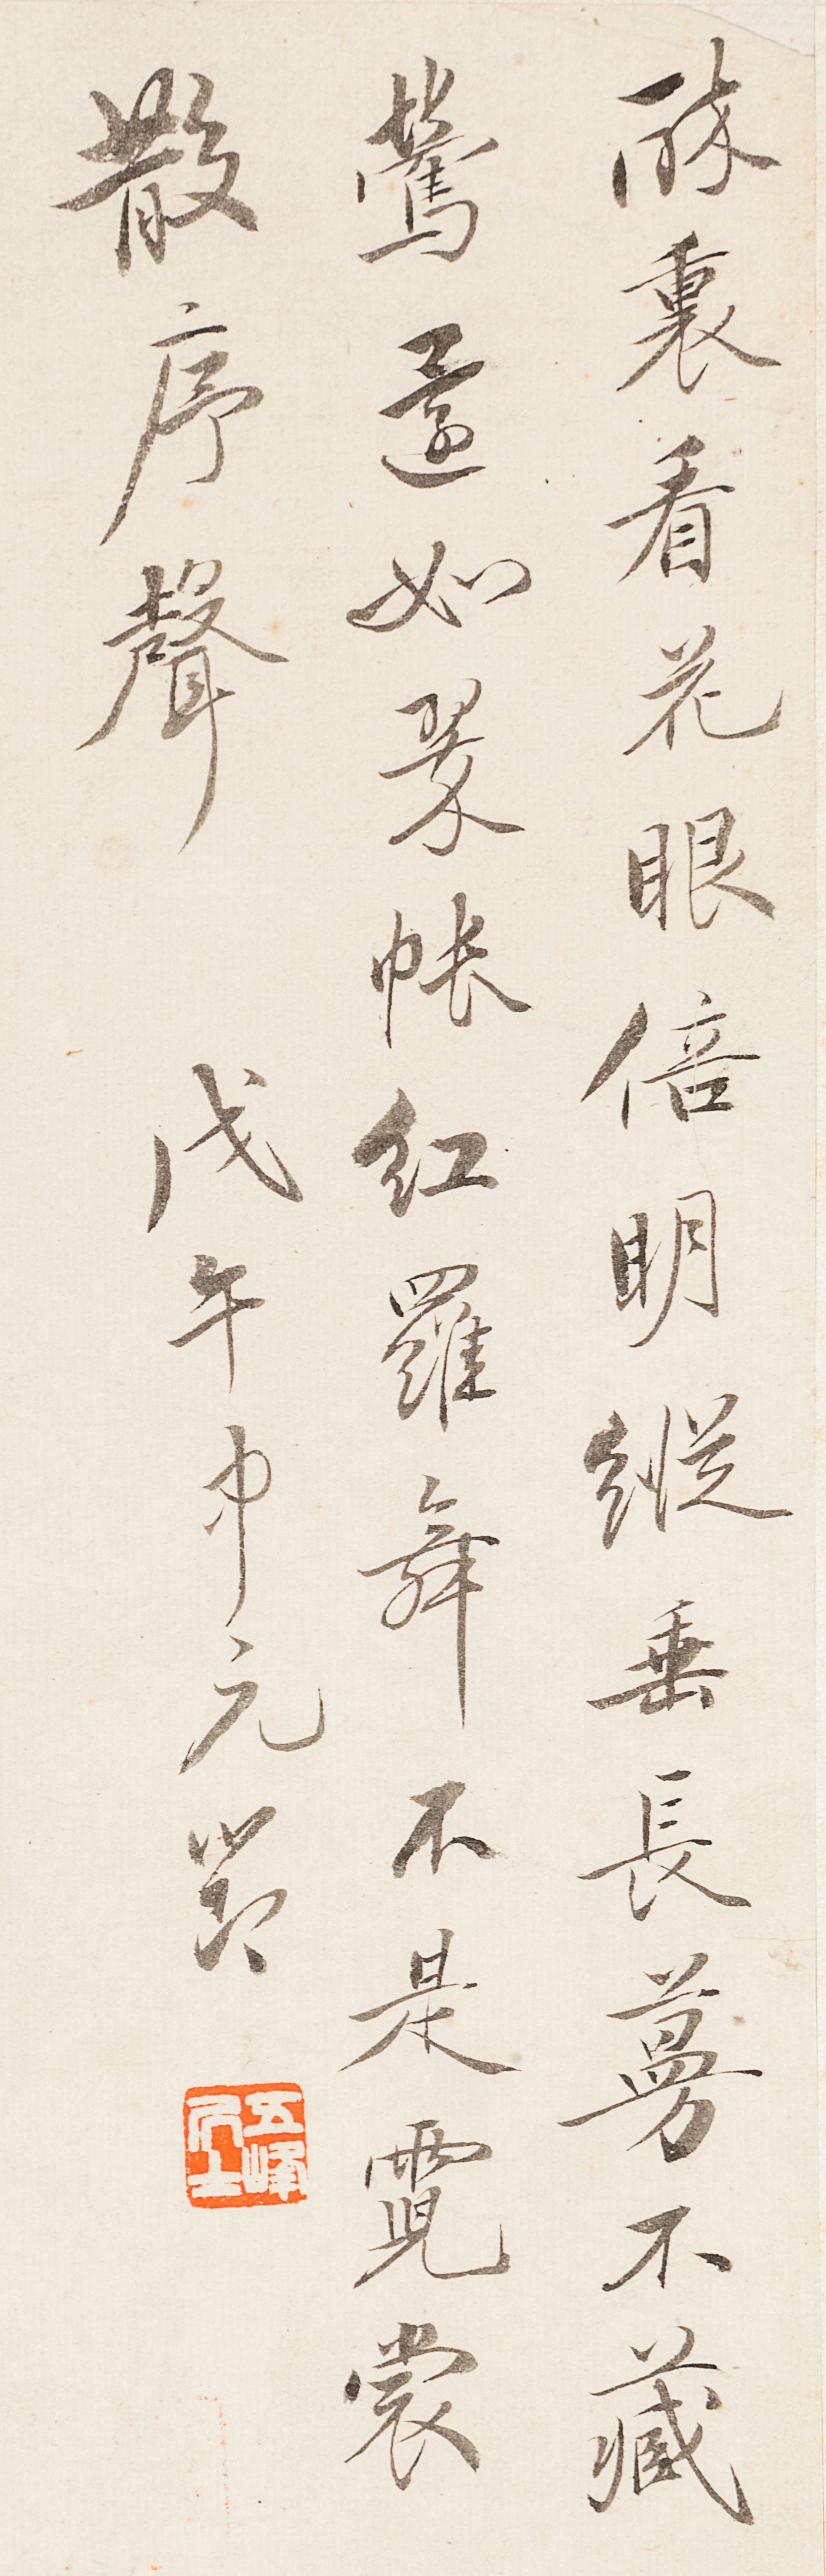 醉裏看花眼倍明縱垂長蔓不藏
鶯還如翠帳紅羅舞不是霓裳
散序聲 戊午中元節
五峰居士